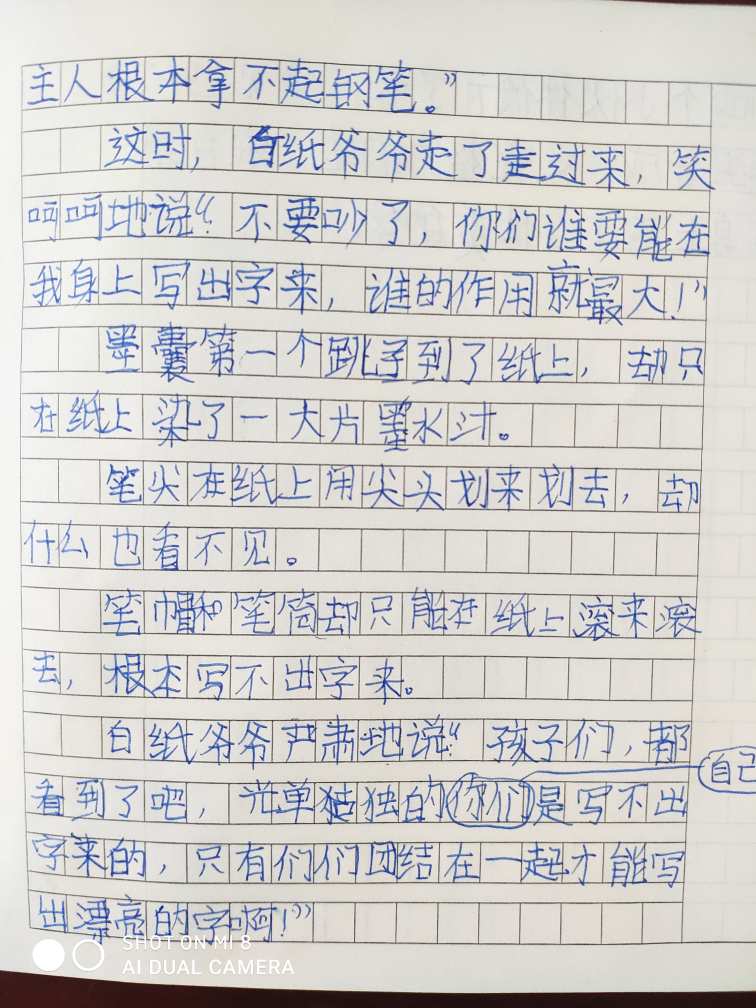 主人根本拿不起钢笔。”
这时，白纸爷爷走了走过来，笑
呵呵地说“不要吵了，你们谁要能在
我身上写出字来，谁的作用就最大！”
墨囊第一个跳到了纸上，却只
在纸上染了一大片墨水汁。
笔尖在纸上用尖头划来划去，却
什么也看不见。
笔帽和笔筒却只能在纸上滚来滚
去，根本写不出字来。
白纸爷爷严肃地说“孩子们，都
看到了吧，光单独独的你们是写不出
自己
字来的，只有们们团结在一起才能写
出漂亮的字啊！”
SHOT ON MI 8
AI DUAL CAMERA